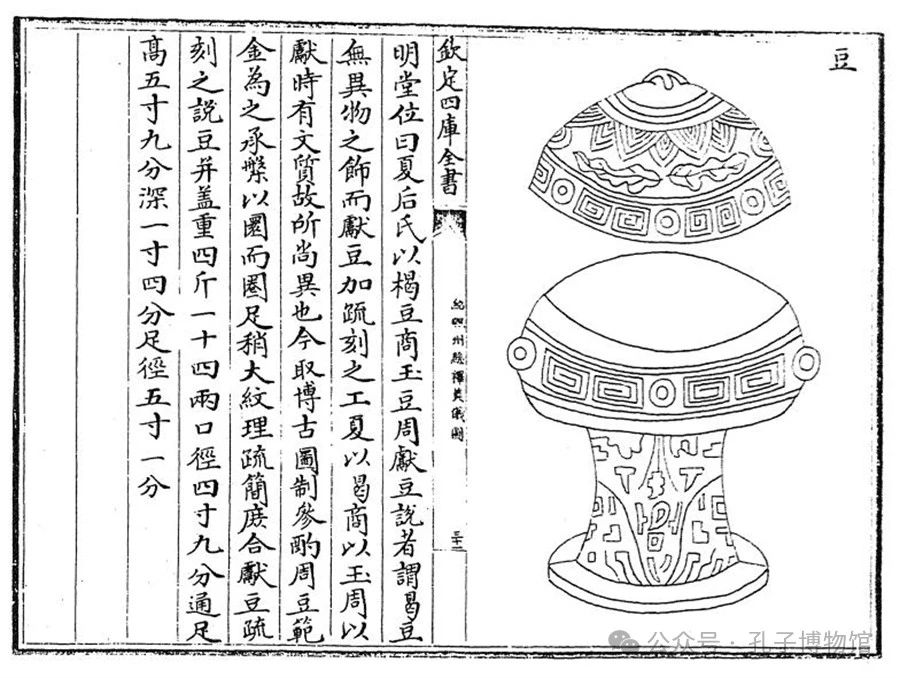 豆
欽定四庫全書
紹熙州縣釋奠儀圖
三十二
明堂位曰夏后氏以楬豆商玉豆周獻豆說者謂曷豆
無異物之飾而獻豆加疏刻之工夏以曷商以玉周以
獻時有文質故所尚異也今取博古圖制參酌周豆範
金為之承槃以圜而圈足稍大紋理疏簡庶合獻豆疏
刻之說豆并盖重四斤一十四兩口徑四寸九分通足
髙五寸九分深一寸四分足徑五寸一分
公众号 · 孔子博物馆